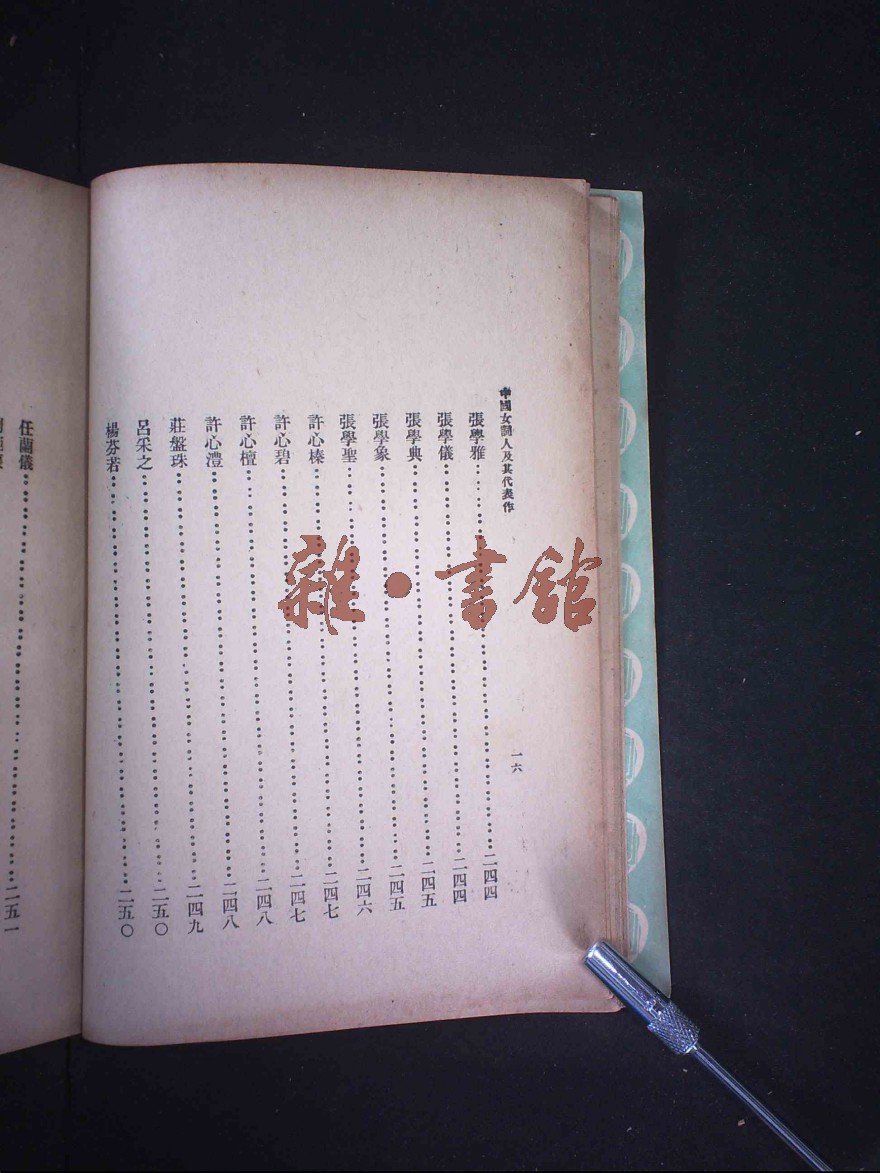 中國女詞人及其代表作
一六
張學雅……………………二四四
張學儀……………………二四四
張學典……………………二四五
張學象……………………二四五
張學聖……………………二四六
許心榛……………………二四七
許心碧……………………二四七
許心檀……………………二四八
許心澧……………………二四八
莊盤珠……………………二四九
呂采之……………………二五〇
楊芬若……………………二五〇
任蘭儀……………………二五一
雜·書館